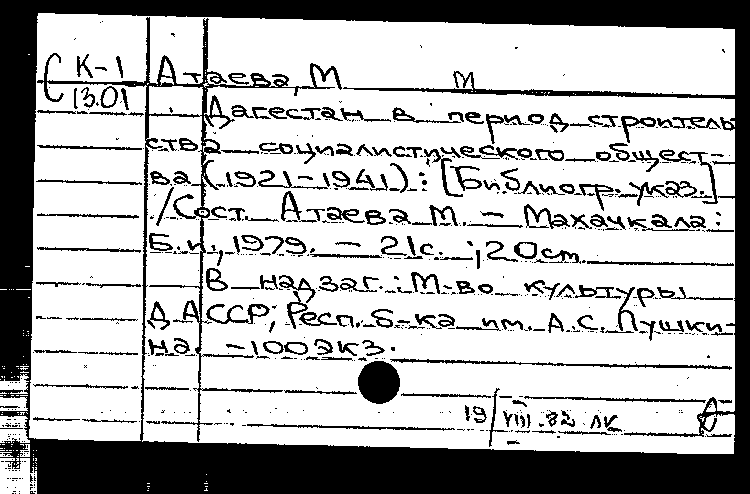 С К-1 Атаева, М М
13.01 Дагестан в период строитель
ства социалистического общест-
ва (1921-1941): [Библиогр. указ.]
/Сост. Атаева М. - Махачкала:
Б.и., 1979. - 21с. ; 20см
В надзаг.: М-во культуры
ДАССР, Респ. б-ка им. А.С. Пушки-
на. -100экз.
19/VIII.82 ЛК